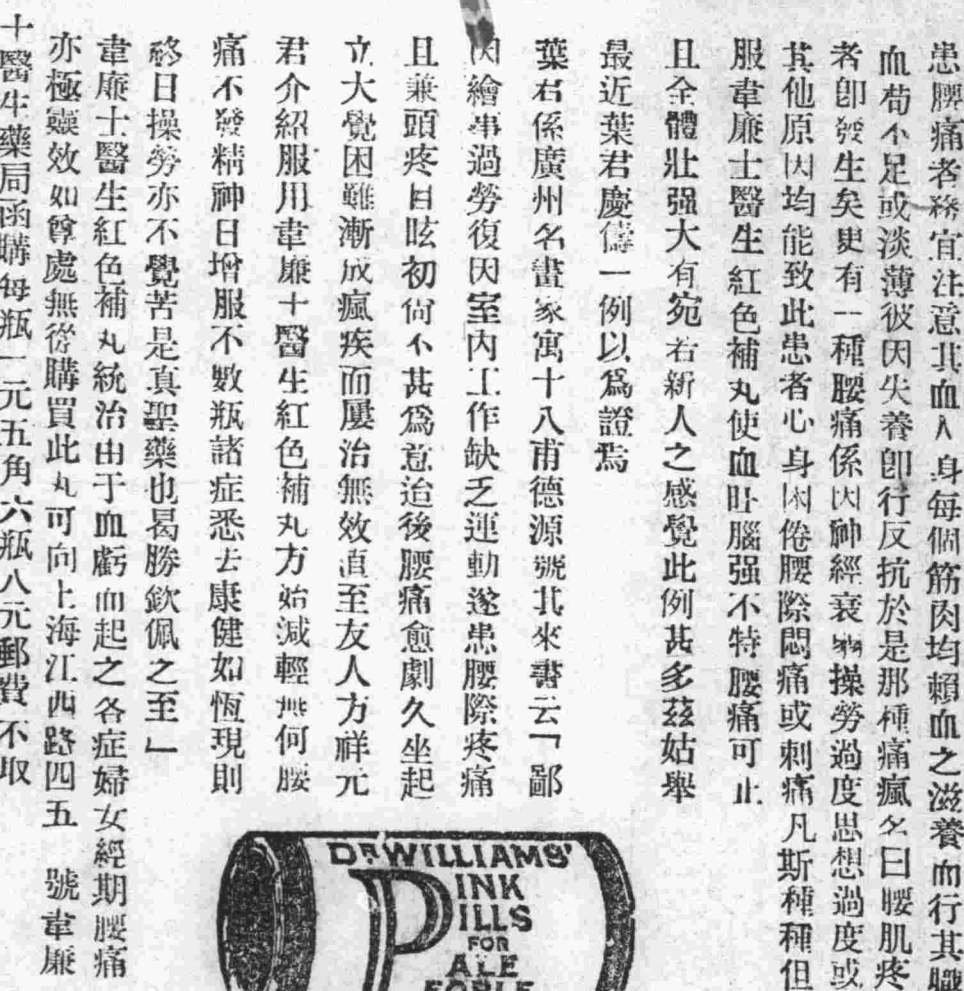 患腰痛者務宜注意其血人身每個筋肉均賴血之滋養而行其職
血苟不足或淡薄彼因失養卽行反抗於是那種痛瘋名曰腰肌疼
者卽發生矣更有一種腰痛係因神經衰弱操勞過度思想過度或
其他原因均能致此患者心身困倦腰際悶痛或刺痛凡斯種種但
服韋廉士醫生紅色補丸使血旺腦强不特腰痛可止
且全體壯强大有宛若新人之感覺此例甚多茲姑舉
最近葉君慶儔一例以爲證焉
葉君係廣州名畫家寓十八甫德源號其來書云「鄙
因繪事過勞復因室內工作缺乏運動遂患腰際疼痛
且兼頭疼目眩初尙不甚爲意迨後腰痛愈劇久坐起
立大覺困難漸成瘋疾而屢治無效直至友人方祥元
君介紹服用韋廉士醫生紅色補丸方始減輕無何腰
痛不發精神日增服不數瓶諸症悉去康健如恆現則
終日操勞亦不覺苦是真聖藥也曷勝欽佩之至」
韋廉士醫生紅色補丸統治由于血虧而起之各症婦女經期腰痛
亦極靈效如尊處無從購買此丸可向上海江西路四五 號韋廉
士醫生藥局函購每瓶一元五角六瓶八元郵費不取
DR WILLIAMS'
PINK
PILLS
FOR
ALE
EOPLE